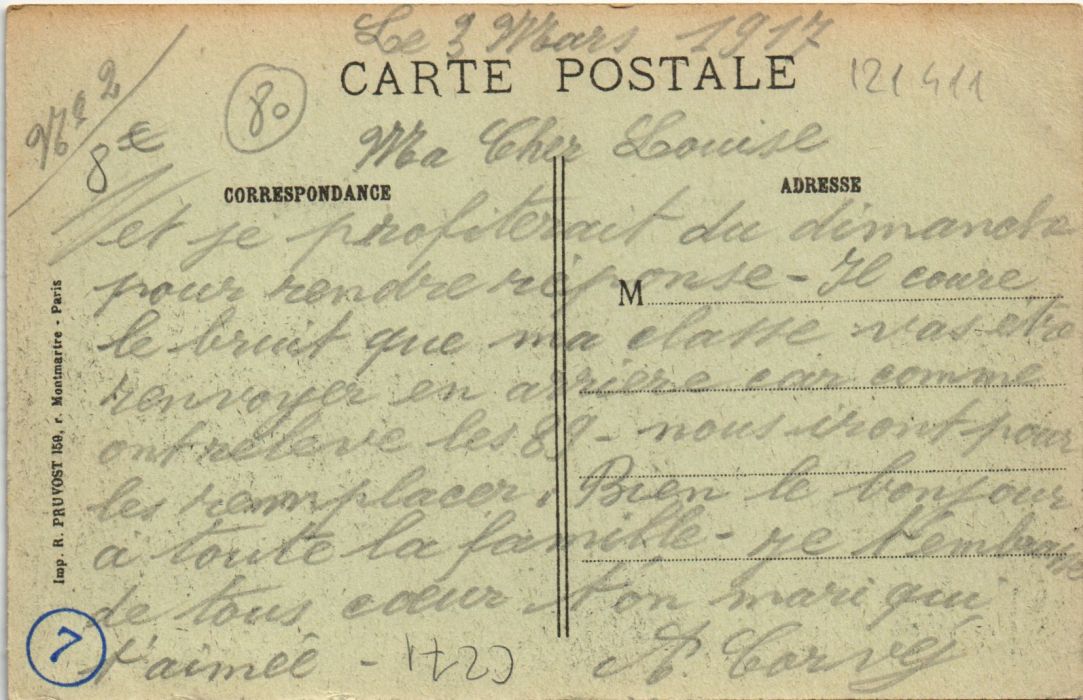 Le 3 Mars 1917
CARTE POSTALE
121411
Nº 2
8€
80
Ma Cher Louise
CORRESPONDANCE
ADRESSE
et je profiterait du dimanche
pour rendre réponse - Il coure
M
le bruit que ma classe vas etre
renvoyer en arriere car comme
ont releve les 89 - nous iront pour
les remplacer. Bien le bonjour
a toute la famille - je t'embrasse
de tous cœur ton mari qui
t'aimée - A. Corvéj
1723
7
Imp. R. PRUVOST 159, r. Montmartre - Paris